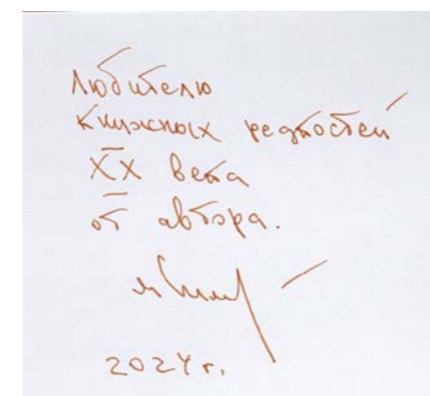 Любителю
книжных редкостей
XX века
от автора.
2024 г.